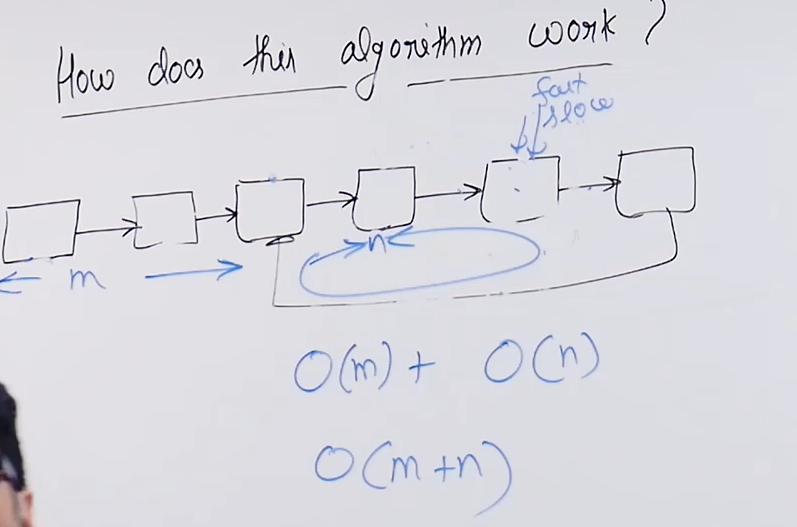 How does this algorithm work?
fast
slow
n
m
O(m) + O(n)
O(m+n)